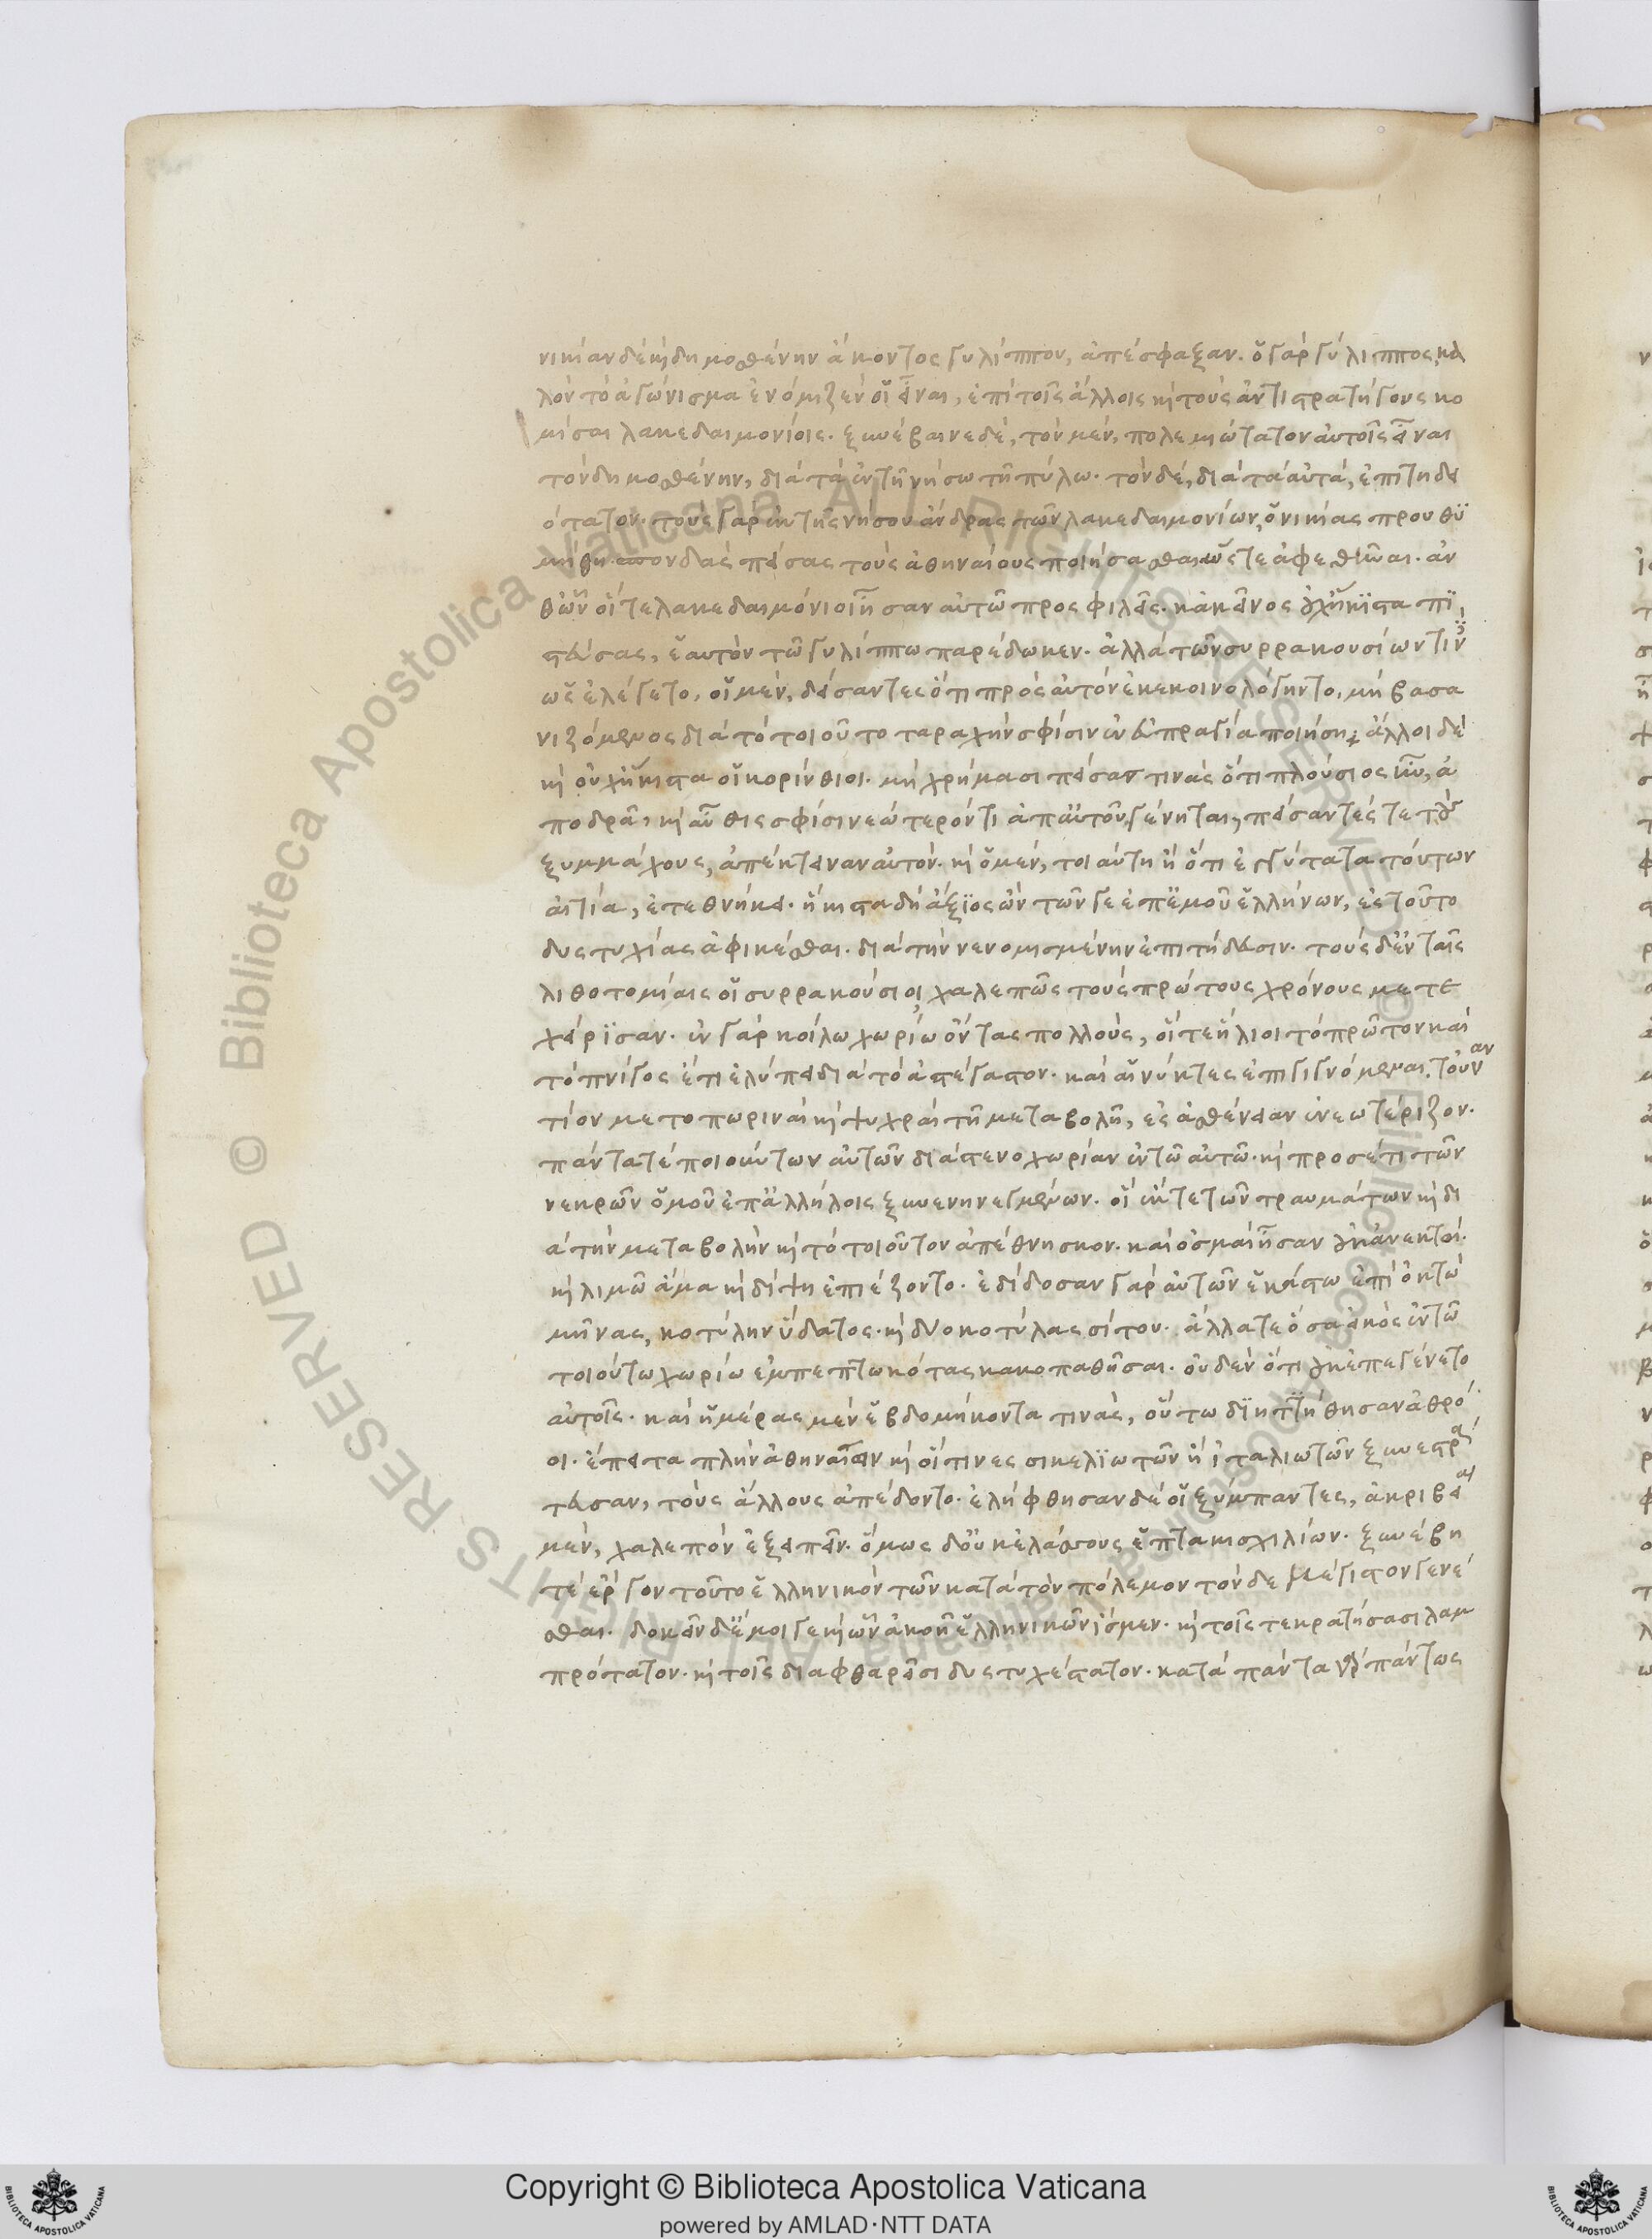 νικίαν δὲ καὶ δημοσθένην ἄκοντος γυλίππου, ἀπέσφαξαν. ὁ γὰρ γύλιππος, κα
λὸν τὸ ἀγώνισμα ἐνόμιζεν οἷ εἶναι, ἐπὶ τοῖς ἄλλοις καὶ τοὺς ἀντιστρατήγους κο
μίσαι λακεδαιμονίοις. ξυνέβαινε δὲ, τὸν μὲν, πολεμιώτατον αὐτοῖς εἶναι
τὸν δημοσθένην, διὰ τὰ ἐν τῆ νήσω τῆ πύλω. τὸν δὲ, διὰ τὰ αὐτὰ, ἐπιτηδει
ότατον. τοὺς γὰρ ἐκ τῆς νήσου ἄνδρας τῶν λακεδαιμονίων, ὁ νικίας προυθυ
μήθη σπονδὰς πείσας τοὺς ἀθηναίους ποιήσασθαι ὥστε ἀφεθῆναι. ἀν
θ' ὧν οἵ τε λακεδαιμόνιοι ἦσαν αὐτῶ προσφιλεῖς. κἀκεῖνος οὐχ ἥκιστα πι
στεύσας, ἑαυτὸν τῶ γυλίππω παρέδωκεν. ἀλλὰ τῶν συρρακουσίων τινὲς
ὡς ἐλέγετο, οἱ μὲν, δείσαντες ὅτι πρὸς αὐτὸν ἐκεκοινολόγηντο, μὴ βασα
νιζόμενος διὰ τὸ τοιοῦτο ταραχὴν σφίσιν ἐν εὐπραγία ποιήση, ἄλλοι δὲ
καὶ οὐχ ἥκιστα οἱ κορίνθιοι. μὴ χρήμασι πείσας τινὰς ὅτι πλούσιος ἦν, ἀ
ποδρᾶ, καὶ αὖθις σφίσι νεώτερόν τι ἀπ' αὐτοῦ γένηται, πείσαντές τε τοὺς
ξυμμάχους, ἀπέκτειναν αὐτὸν. καὶ ὁ μὲν, τοιαύτη ἢ ὅτι ἐγγύτατα τούτων
αἰτία, ἐτεθνήκει. ἥκιστα δὴ ἄξιος ὢν τῶν γε ἐπ' ἐμοῦ ἑλλήνων, ἐς τοῦτο
δυστυχίας ἀφικέσθαι. διὰ τὴν νενομισμένην ἐπιτήδευσιν. τοὺς δ' ἐν ταῖς
λιθοτομίαις οἱ συρρακούσιοι, χαλεπῶς τοὺς πρώτους χρόνους μετε
χείρισαν. ἐν γὰρ κοίλω χωρίω ὄντας πολλοὺς, οἵ τε ἥλιοι τὸ πρῶτον καὶ
τὸ πνίγος ἔτι ἐλύπει διὰ τὸ ἀστέγαστον. καὶ αἱ νύκτες ἐπιγιγνόμεναι τοὐναν
τίον μετοπωριναὶ καὶ ψυχραὶ τῆ μεταβολῆ, ἐς ἀσθένειαν ἐνεωτέριζον.
πάντα τὲ ποιούντων αὐτῶν διὰ στενοχωρίαν ἐν τῶ αὐτῶ. καὶ προσέτι τῶν
νεκρῶν ὁμοῦ ἐπ' ἀλλήλοις ξυννενημένων. οἳ ἔκ τε τῶν τραυμάτων καὶ δι
ὰ τὴν μεταβολὴν καὶ τὸ τοιοῦτον ἀπέθνησκον. καὶ ὀσμαὶ ἦσαν οὐκ ἀνεκτοί.
καὶ λιμῶ ἅμα καὶ δίψη ἐπιέζοντο. ἐδίδοσαν γὰρ αὐτῶν ἑκάστω ἐπὶ ὀκτὼ
μῆνας, κοτύλην ὕδατος. καὶ δύο κοτύλας σίτου. ἄλλα τε ὅσα εἰκὸς ἐν τῶ
τοιούτω χωρίω ἐμπεπτωκότας κακοπαθῆσαι. οὐδὲν ὅτι οὐκ ἐπεγένετο
αὐτοῖς. καὶ ἡμέρας μὲν ἑβδομήκοντά τινὰς, οὕτω διητήθησαν ἀθρό
οι. ἔπειτα πλὴν ἀθηναίων καὶ οἵτινες σικελιωτῶν ἢ ἰταλιωτῶν ξυνεστρά
τευσαν, τοὺς ἄλλους ἀπέδοντο. ἐλήφθησαν δὲ οἱ ξύμπαντες, ἀκριβεία
μὲν, χαλεπὸν ἐξειπεῖν. ὅμως δ' οὐκ ἐλάσσους ἑπτακισχιλίων. ξυνέβη
τὲ ἔργον τοῦτο ἑλληνικὸν τῶν κατὰ τὸν πόλεμον τόνδε μέγιστον γενέ
σθαι. δοκεῖν δ' ἔμοιγε καὶ ὧν ἀκοῆ ἑλληνικῶν ἴσμεν. καὶ τοῖς τε κρατήσασι λαμ
πρότατον. καὶ τοῖς διαφθαρεῖσι δυστυχέστατον. κατὰ πάντα γὰρ πάντως